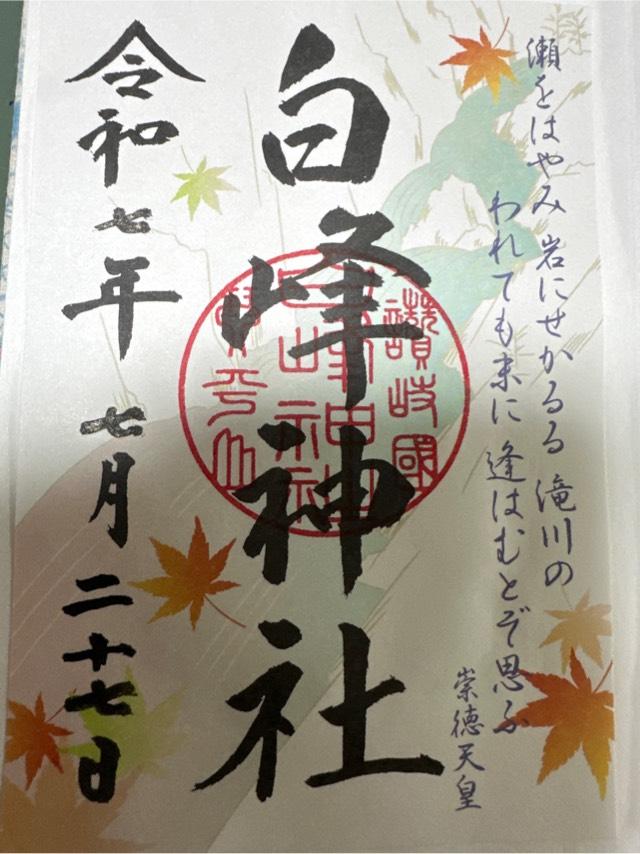 瀬をはやみ 岩にせかるる 滝川の
われても末に 逢はむとぞ思ふ
崇徳天皇
白峰神社
讃岐國
令和七年 七月 二十七日